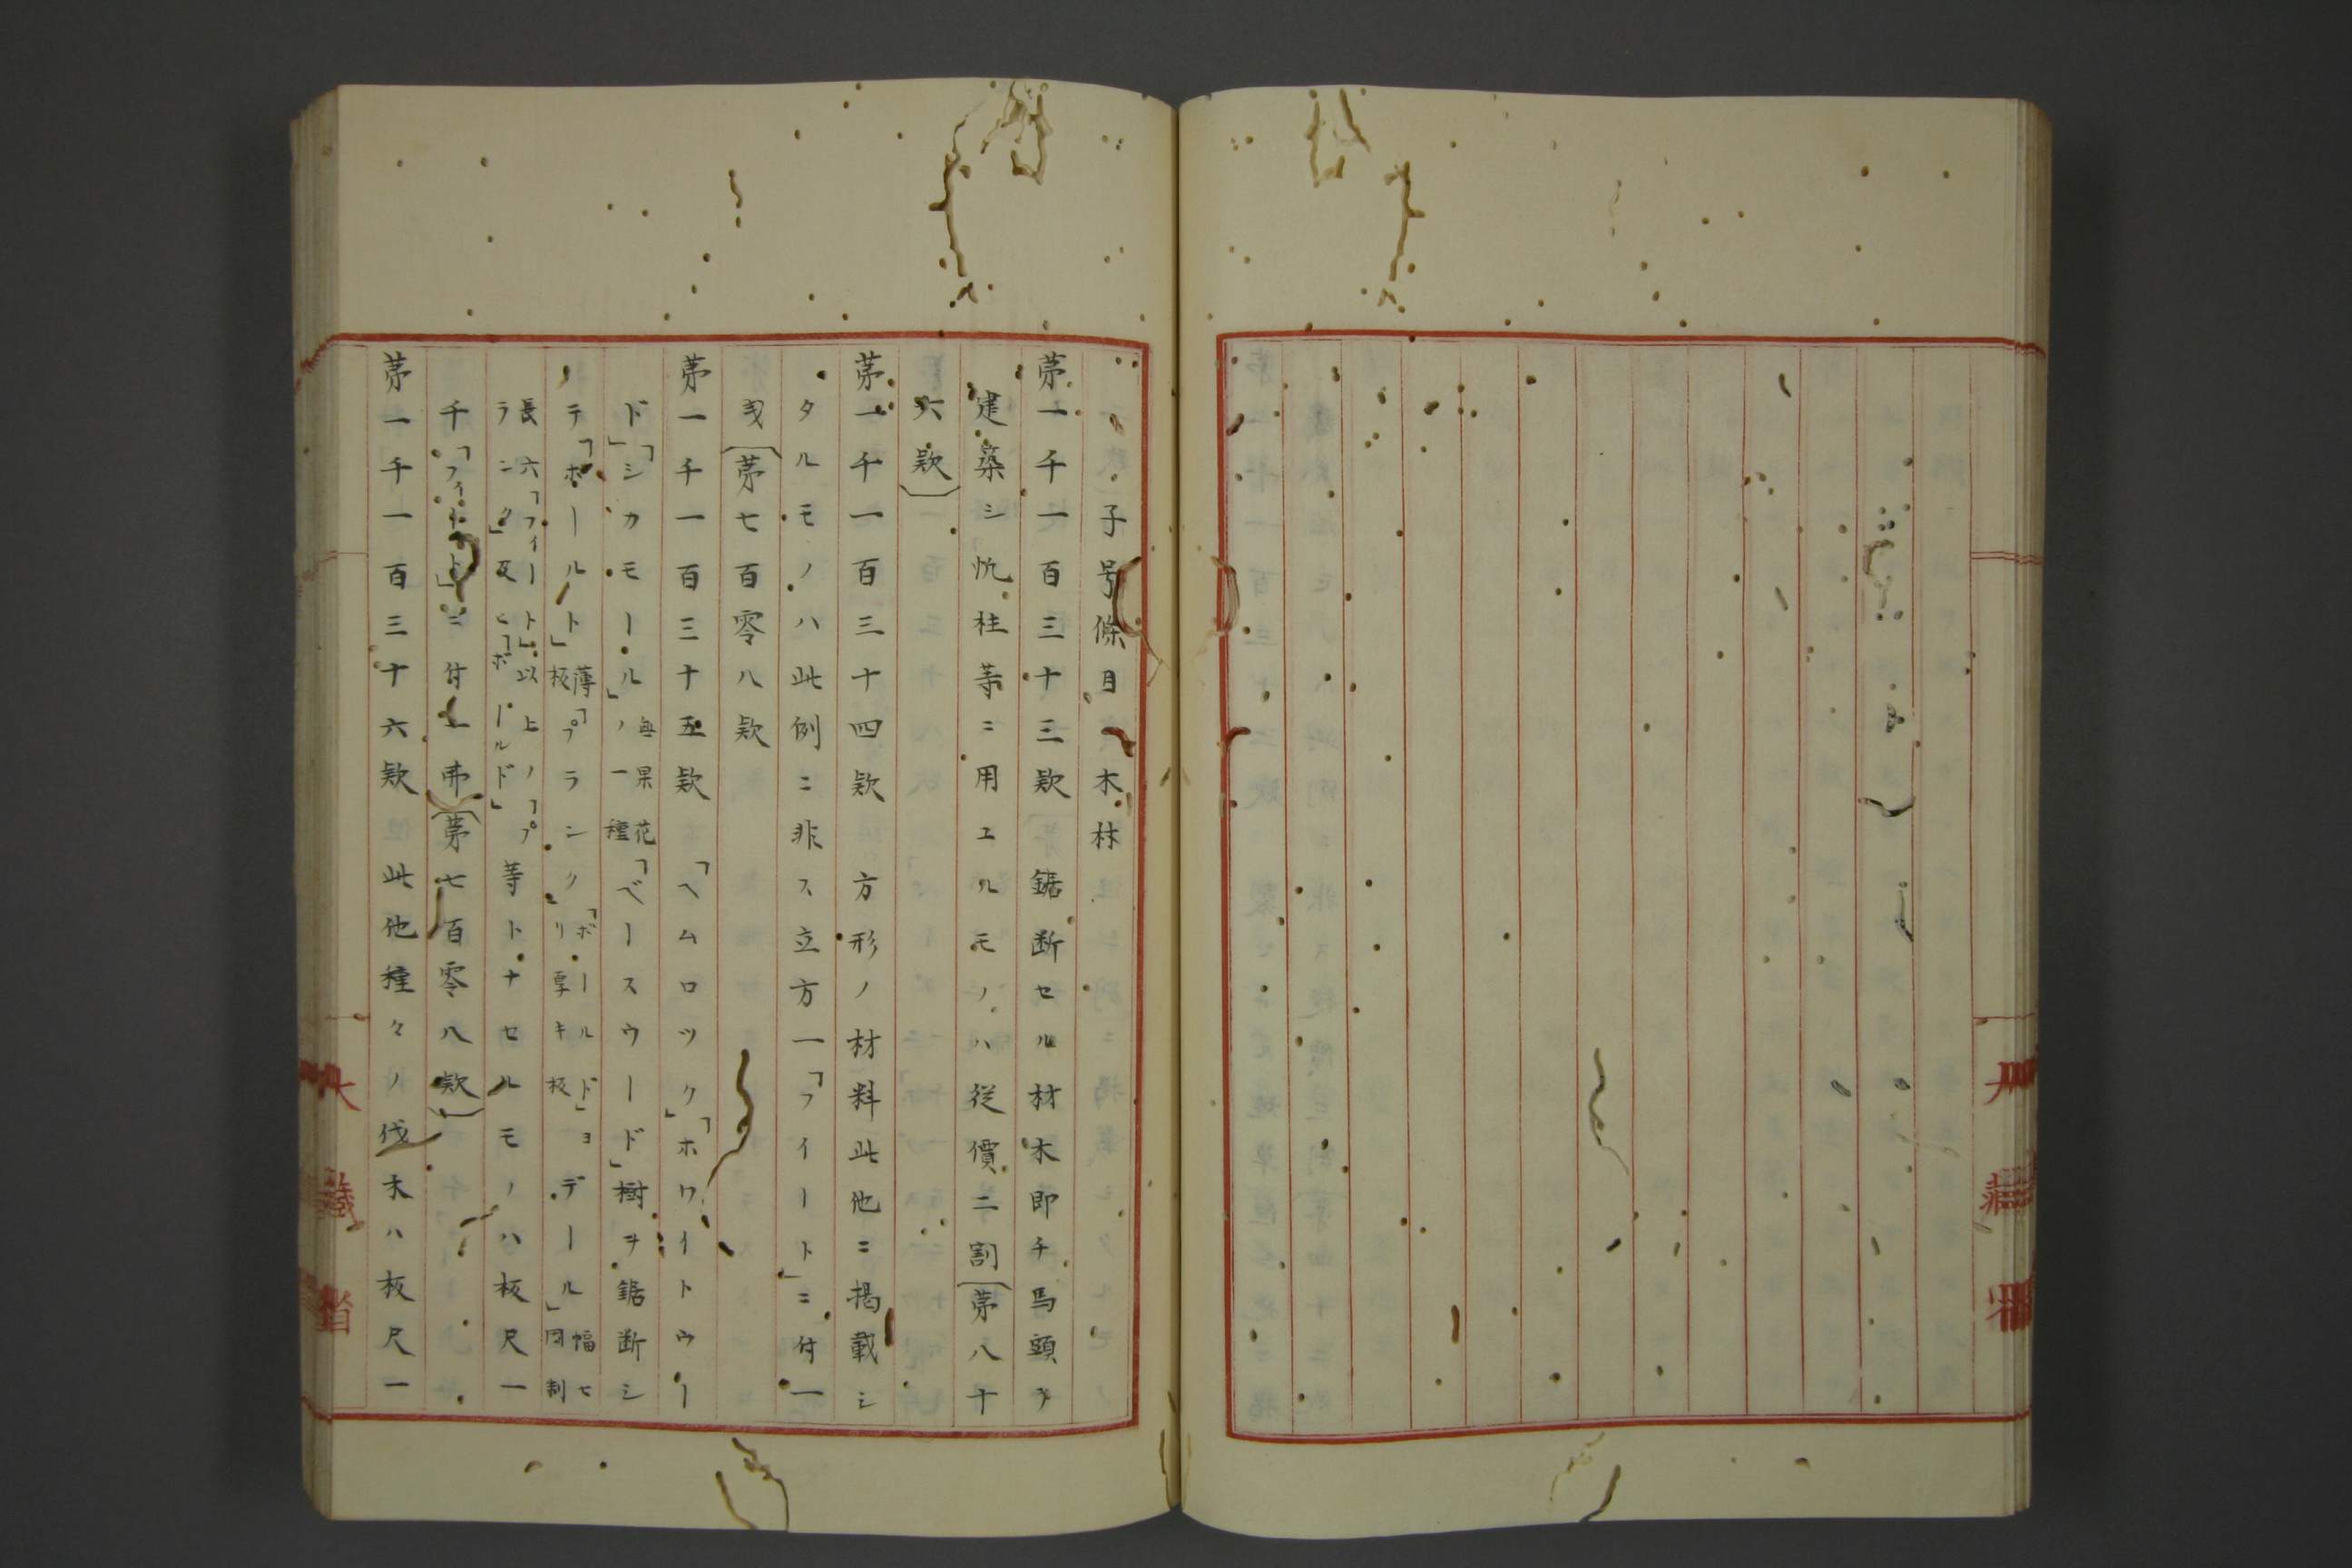 子号條目 木材
第一千一百三十三款 鋸断セル材木即チ馬頭ヲ
建築シ杭柱等ニ用エルモノハ従價二割(第八十
六款)
第一千一百三十四款 方形ノ材料此他ニ掲載シ
タルモノハ此例ニ非ス立方一「フイート」ニ付一
戔(第七百零八款
第一千一百三十五款 「ヘムロツク」「ホワイトウー
ド」「シカモール」ノ一種無果花「ベースウード」樹ヲ鋸断シ
テ「ボールト」薄板「プランク」「ボールド」ヨリ厚キ板「デール」幅七因制
長六「フイート」以上ノ「プランク」及ヒ「ボールド」等トナセルモノハ板尺一
千「フイート」ニ付一弗(第七百零八款)
第一千一百三十六款 此他種々ノ伐木ハ板尺一
大藏省